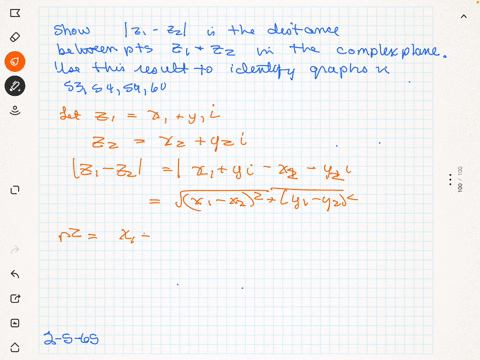 Show |z₁ - z₂| is the distance
between pts z₁ + z₂ in the complex plane.
Use this result to identify graphs
53, 54, 59, 60
Let z₁ = x₁ + y₁i
z₂ = x₂ + y₂i
|z₁ - z₂| = | x₁ + yi - x₂ - y₂i
= √(x₁ - x₂)² + (y₁ - y₂)²
x₁
2-5-65
100 / 100